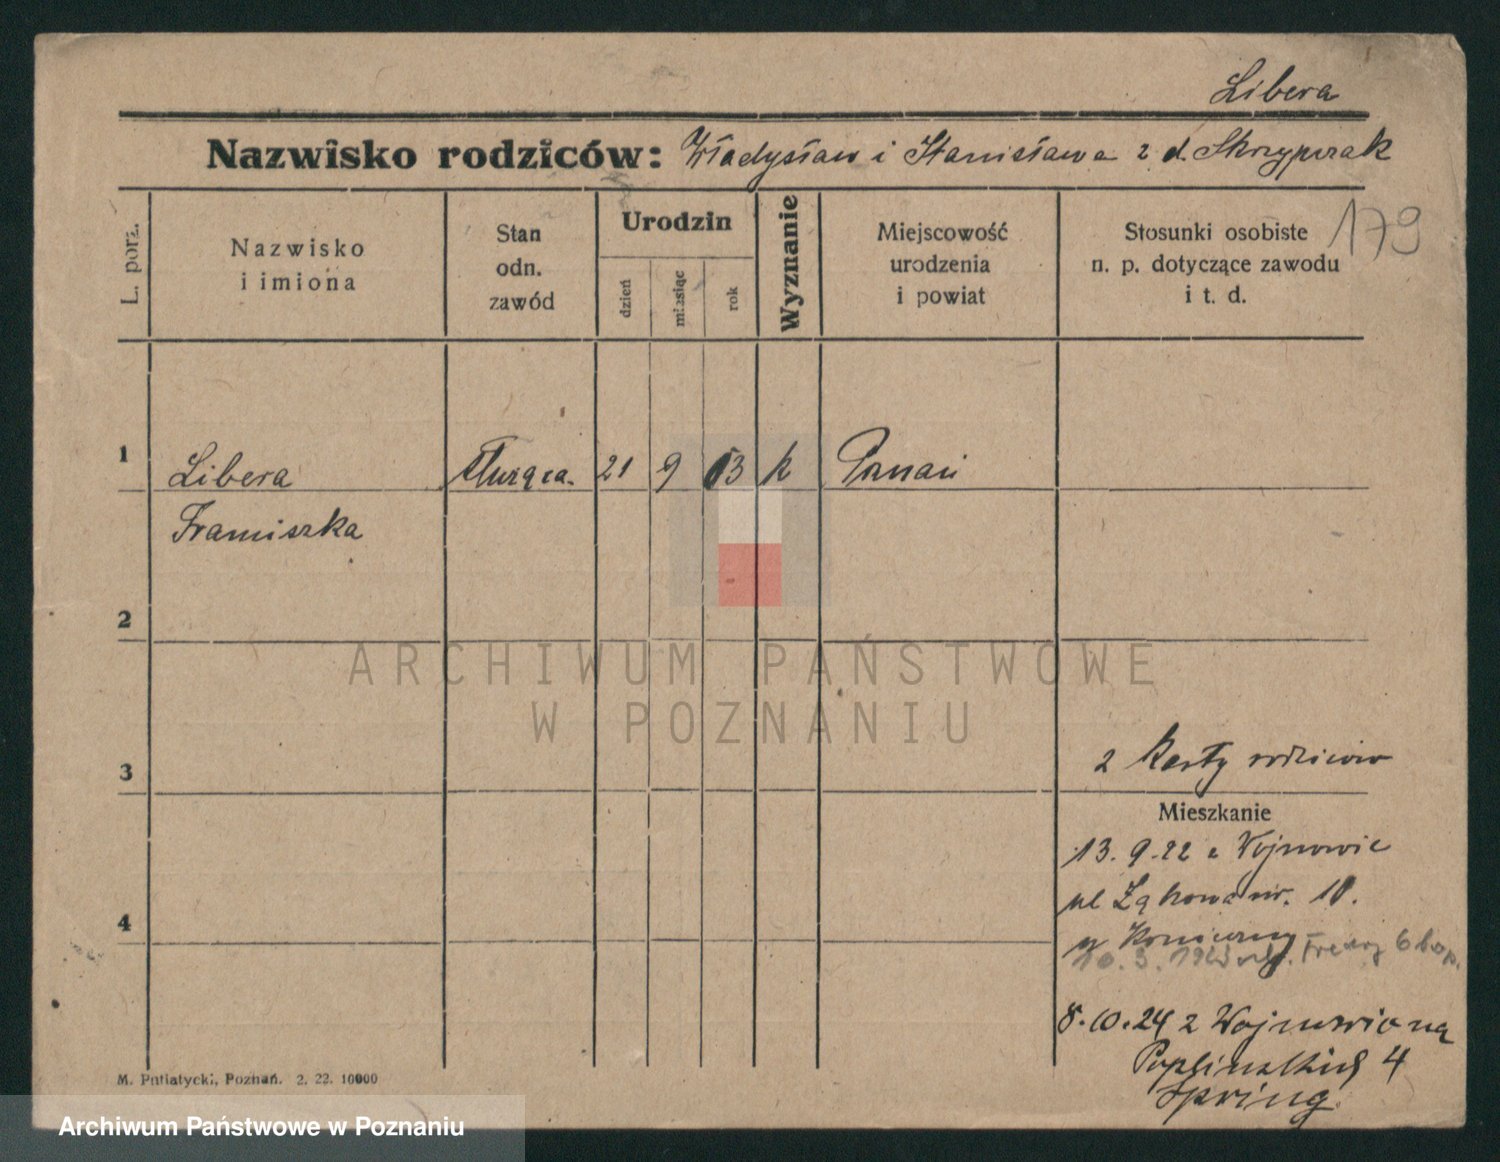 Libera
Nazwisko rodziców: Władysław i Stanisława z d. Skrzypczak
179
L. porz.
Nazwisko
i imiona
Stan
odn.
zawód
Urodzin
dzień
miesiąc
rok
Wyznanie
Miejscowość
urodzenia
i powiat
Stosunki osobiste
n. p. dotyczące zawodu
i t. d.
1 Libera służąca 21 9 03 k Poznań
Franciszka
2
ARCHIWUM PAŃSTWOWE
W POZNANIU
3
2 karty rodziców
Mieszkanie
13. 9. 22 z Wojnowic
ul Łąkowa nr. 10.
4
10. 3. Fredry 6
8.10.24 z Wojnowic na
Poplińskich 4
Spring
M. Putiatycki, Poznań. 2. 22. 10000
Archiwum Państwowe w Poznaniu